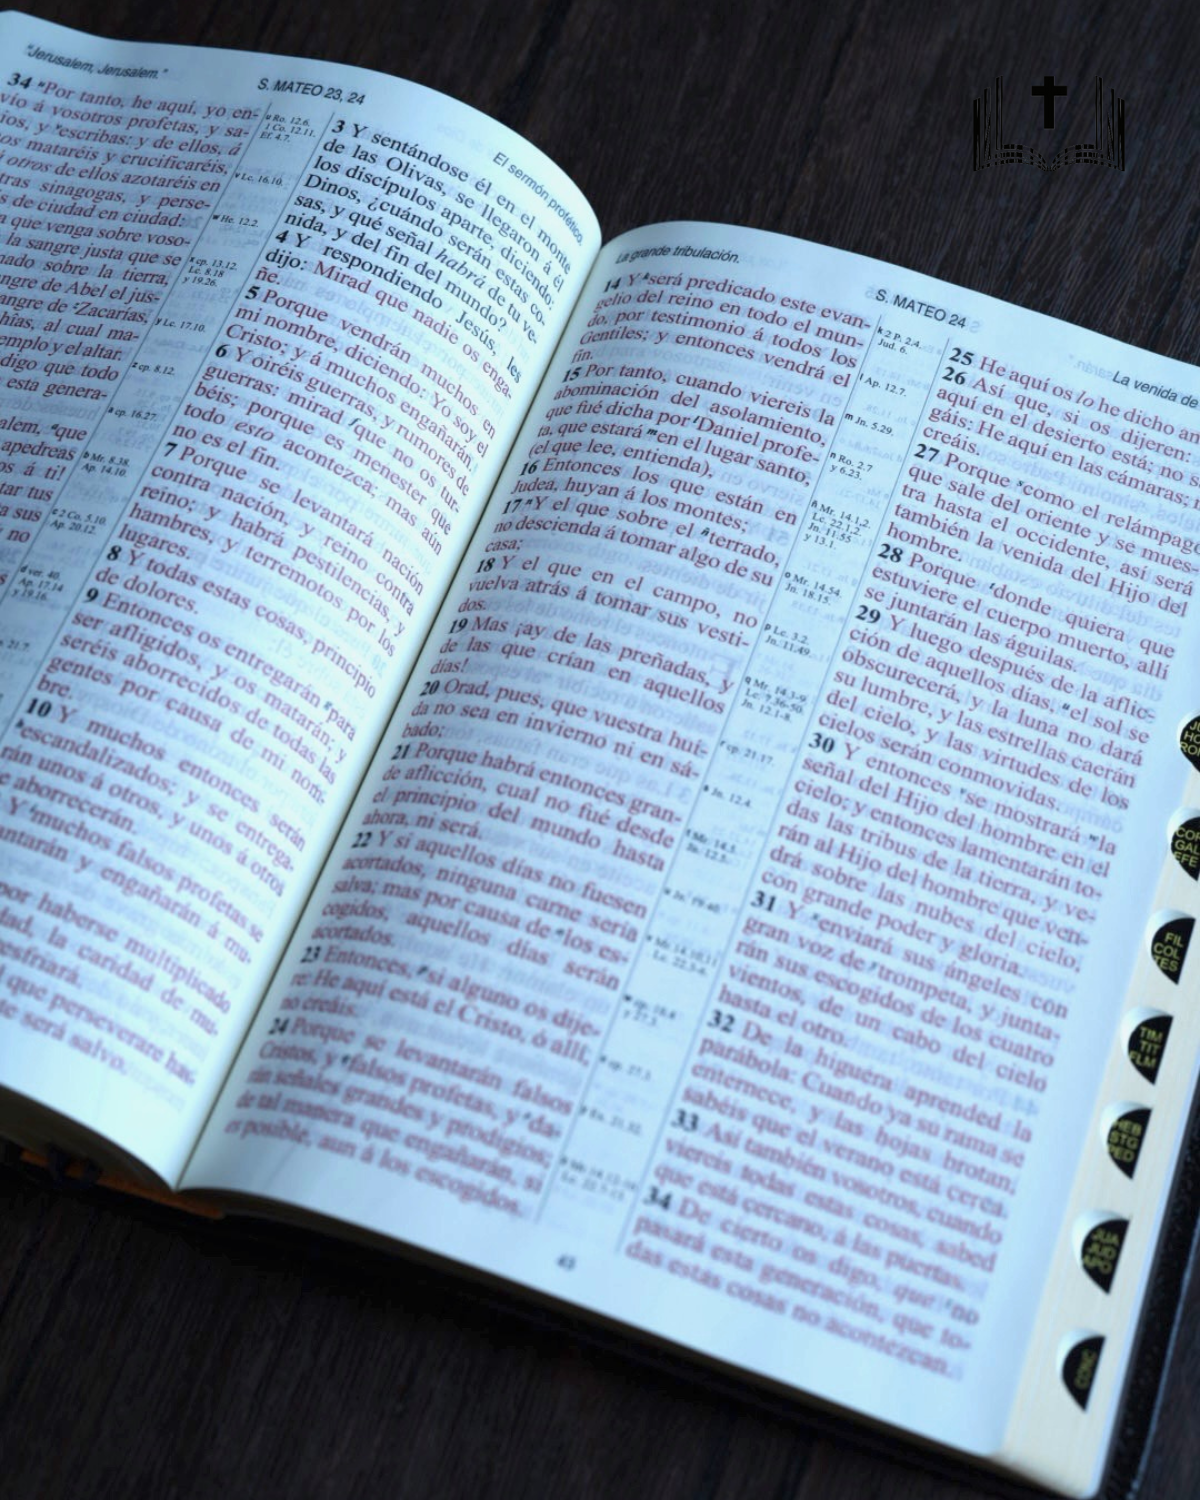 "Jerusalem, Jerusalem."
S. MATEO 23, 24
El sermón profético.
34 "Por tanto, he aquí, yo en-
vío á vosotros profetas, y sa-
ios, y escribas: y de ellos, á
os mataréis y crucificaréis,
otros de ellos azotaréis en
tras sinagogas, y perse-
s de ciudad en ciudad:
a que venga sobre voso-
la sangre justa que se
nado sobre la tierra,
ngre de Abel el jus-
angre de Zacarías,
hías, al cual ma-
emplo y el altar.
digo que todo
está genera-
alem, que
apedreas
os á ti!
tar tus
a sus
no
u Ro. 12.6.
1 Co. 12.11.
Ef. 4.7.
v Lc. 16.10.
w He. 12.2.
x cp. 13.12.
Lc. 8.18
y 19.26.
y Lc. 17.10.
z cp. 8.12.
a cp. 16.27.
b Mr. 8.38.
Ap. 14.10
c 2 Co. 5.10.
Ap. 20.12.
d ver. 40.
Ap. 17.14
y 19.16.
21.7.
muchos falsos profetas se
antarán y engañarán á mu-
por haberse multiplicado
dad, la caridad de mu-
esfriará.
que perseverare has-
te será salvo.
3 Y sentándose él en el monte
de las Olivas, se llegaron á él
los discípulos aparte, diciendo:
Dinos, ¿cuándo serán estas co-
sas, y qué señal habrá de tu ve-
nida, y del fin del mundo?
4 Y respondiendo Jesús, les
dijo: Mirad que nadie os enga-
ñe.
5 Porque vendrán muchos en
mi nombre, diciendo: Yo soy el
Cristo; y á muchos engañarán.
6 Y oiréis guerras, y rumores de
guerras: mirad que no os tur-
béis; porque es menester que
todo esto acontezca; mas aún
no es el fin.
7 Porque se levantará nación
contra nación, y reino contra
reino; y habrá pestilencias, y
hambres, y terremotos por los
lugares.
8 Y todas estas cosas, principio
de dolores.
9 Entonces os entregarán para
ser afligidos, y os matarán; y
seréis aborrecidos de todas las
gentes por causa de mi nom-
bre.
10 Y muchos entonces serán
escandalizados; y se entrega-
rán unos á otros, y unos á otros
e aborrecerán.
La grande tribulación.
S. MATEO 24
La venida de
14 Y será predicado este evan-
gelio del reino en todo el mun-
do, por testimonio á todos los
Gentiles; y entonces vendrá el
fin.
15 Por tanto, cuando viereis la
abominación del asolamiento,
que fué dicha por Daniel profe-
ta, que estará en el lugar santo,
(el que lee, entienda),
16 Entonces los que están en
Judea, huyan á los montes;
17 Y el que sobre el terrado,
no descienda á tomar algo de su
casa;
18 Y el que en el campo, no
vuelva atrás á tomar sus vesti-
dos.
19 Mas ¡ay de las preñadas, y
de las que crían en aquellos
días!
20 Orad, pues, que vuestra hui-
da no sea en invierno ni en sá-
bado;
21 Porque habrá entonces gran-
de aflicción, cual no fué desde
el principio del mundo hasta
ahora, ni será.
22 Y si aquellos días no fuesen
acortados, ninguna carne sería
salva; mas por causa de los es-
cogidos, aquellos días serán
acortados.
23 Entonces, si alguno os dije-
re: He aquí está el Cristo, ó allí,
no creáis.
24 Porque se levantarán falsos
Cristos, y falsos profetas, y da-
rán señales grandes y prodigios;
de tal manera que engañarán, si
es posible, aun á los escogidos.
k 2 P. 2.4.
Jud. 6.
l Ap. 12.7.
m Jn. 5.29.
n Ro. 2.7
y 6.23.
ñ Mr. 14.1,2.
Lc. 22.1,2.
Jn. 11.55
y 13.1.
o Mr. 14.54.
Jn. 18.15.
p Lc. 3.2.
Jn. 11.49.
q Mr. 14.3-9
Lc. 7.36-50.
Jn. 12.1-8.
r cp. 21.17.
s Jn. 12.4.
25 He aquí os lo he dicho an
26 Así que, si os dijeren:
aquí en el desierto está; no s
gáis: He aquí en las cámaras;
creáis.
27 Porque como el relámpago
que sale del oriente y se mues-
tra hasta el occidente, así será
también la venida del Hijo del
hombre.
28 Porque donde quiera que
estuviere el cuerpo muerto, allí
se juntarán las águilas.
29 Y luego después de la aflic-
ción de aquellos días, el sol se
obscurecerá, y la luna no dará
su lumbre, y las estrellas caerán
del cielo, y las virtudes de los
cielos serán conmovidas.
30 Y entonces se mostrará la
señal del Hijo del hombre en el
cielo; y entonces lamentarán to-
das las tribus de la tierra, y ve-
rán al Hijo del hombre que ven-
drá sobre las nubes del cielo,
con grande poder y gloria.
31 Y enviará sus ángeles con
gran voz de trompeta, y junta-
rán sus escogidos de los cuatro
vientos, de un cabo del cielo
hasta el otro.
32 De la higuera aprended la
parábola: Cuando ya su rama se
enternece, y las hojas brotan,
sabéis que el verano está cerca.
33 Así también vosotros, cuando
viereis todas estas cosas, sabed
que está cercano, á las puertas.
34 De cierto os digo, que no
pasará esta generación, que to-
das estas cosas no acontezcan.
FIL
COL
TES
TIM
TIT
FLM
HEB
STG
PED
JUA
JUD
APO
CONC